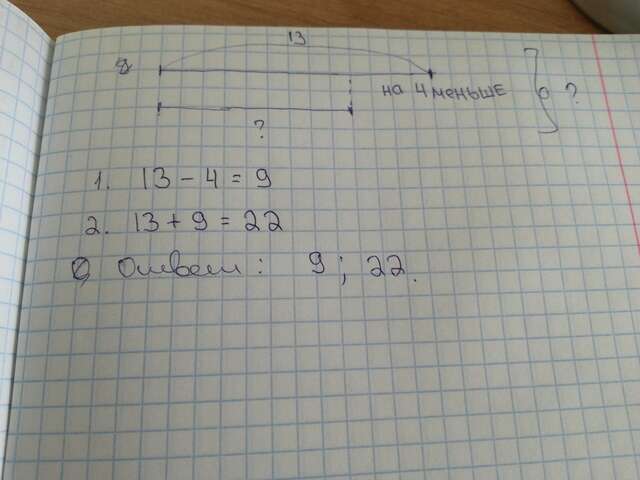 13
на 4 меньше ?
?
1. 13 - 4 = 9
2. 13 + 9 = 22
Ответ: 9; 22.